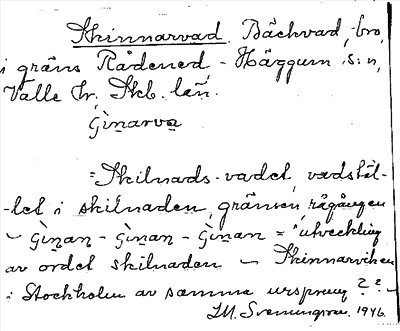 Skinnarvad. Bäckvad, bro,
i gräns Rådened - Häggum s:n,
Valle hr. Skb. län.
Ginarva
= Skilnads-vadet, vadstäl-
-let i skilnaden, gränsen rågången
- Ginan - Ginan - Ginan = utveckling
av ordet skilnaden - Skinnarviken
i Stockholm av samma ursprung ? ? -
1946.